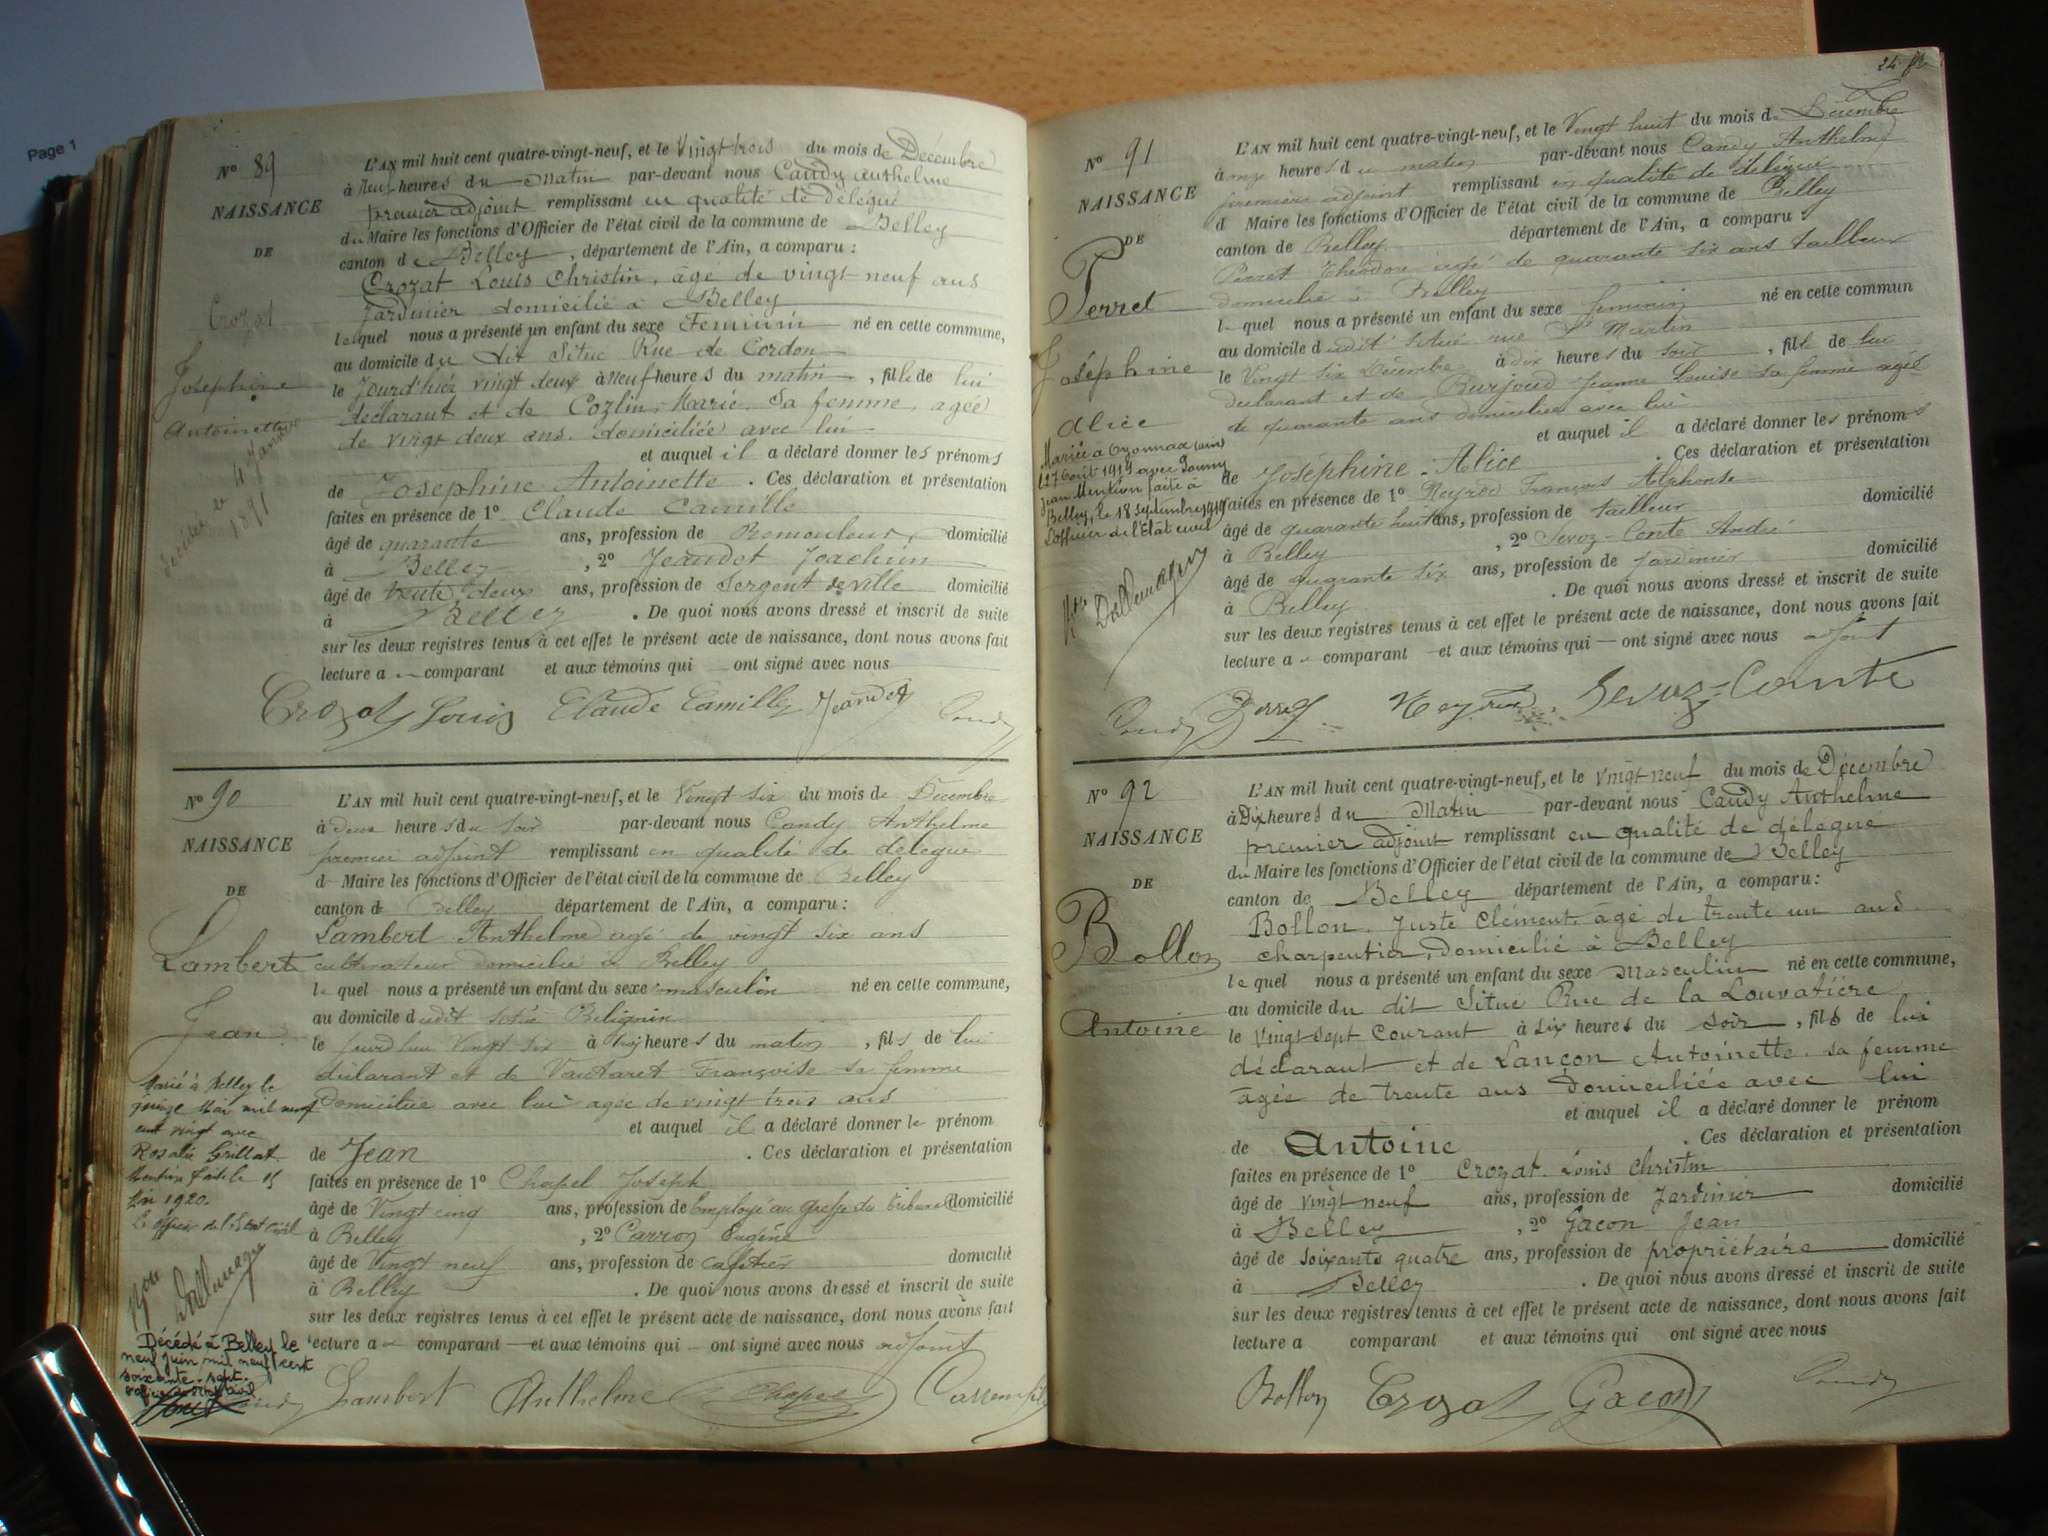 Page 1
N° 89
NAISSANCE
DE
Crozat
Joséphine
Antoinette
décédée le 4 Janvier
1891
L'AN mil huit cent quatre-vingt-neuf, et le Vingt trois du mois de Décembre
à Neuf heures du Matin par-devant nous Candy Anthelme
premier adjoint remplissant en qualité de délégué
du Maire les fonctions d'Officier de l'état civil de la commune de Belley
canton de Belley, département de l'Ain, a comparu :
Crozat Louis Christin, âgé de vingt neuf ans
Jardinier domicilié à Belley
lequel nous a présenté un enfant du sexe Feminin né en cette commune,
au domicile du dit Situé Rue de Cordon
le Jourd'hier vingt deux à Neuf heures du matin, fille de lui
déclarant et de Cozlin Marie, Sa femme, agée
de vingt deux ans. domiciliée avec lui
et auquel il a déclaré donner les prénoms
de Joséphine Antoinette. Ces déclaration et présentation
faites en présence de 1° Claude Camille
âgé de quarante ans, profession de Remouleur, domicilié
à Belley, 2° Jeandet Joachim
âgé de trente deux ans, profession de Sergent de ville domicilié
à Belley. De quoi nous avons dressé et inscrit de suite
sur les deux registres tenus à cet effet le présent acte de naissance, dont nous avons fait
lecture au comparant et aux témoins qui ont signé avec nous
Crozat Louis Claude Camille Jeandet Candy
N° 90
NAISSANCE
DE
Lambert
Jean
Marié à Belley le
quinze Mai mil neuf
cent vingt avec
Rosalie Grillat
Mention faite le 15
Mai 1920.
Le officier de l'Etat civil
Décédé à Belley le
neuf juin mil neuf cent
soixante-sept.
L'AN mil huit cent quatre-vingt-neuf, et le Vingt six du mois de Décembre
à deux heures du soir par-devant nous Candy Anthelme
premier adjoint remplissant en qualité de délégué
d Maire les fonctions d'Officier de l'état civil de la commune de Belley
canton de Belley département de l'Ain, a comparu :
Lambert Anthelme agé de vingt six ans
cultivateur domicilié à Belley
lequel nous a présenté un enfant du sexe masculin né en cette commune,
au domicile dudit situé Belignin
le jourd'hui Vingt six à heures du matin, fils de lui
déclarant et de Vautaret Françoise sa femme
domiciliée avec lui agée de vingt trois ans
et auquel il a déclaré donner le prénom
de Jean. Ces déclaration et présentation
faites en présence de 1° Chapel Joseph
âgé de Vingt cinq ans, profession de Employé au greffe du tribunal domicilié
à Belley, 2° Carron Eugène
âgé de Vingt neuf ans, profession de cafetier domicilié
à Belley. De quoi nous avons dressé et inscrit de suite
sur les deux registres tenus à cet effet le présent acte de naissance, dont nous avons fait
lecture au comparant et aux témoins qui ont signé avec nous adjoint
Candy Lambert Anthelme Chapel
24
N° 91
NAISSANCE
DE
Perret
Joséphine
Alice
Mariée à Oyonnax (Ain)
le 27 Août 1919 avec
Jean Mention faite à
Belley, le 18 septembre 1919
L'officier de l'État civil
L'AN mil huit cent quatre-vingt-neuf, et le Vingt huit du mois de Décembre
à onze heures du matin par-devant nous Candy Anthelme
premier adjoint remplissant en qualité de délégué
d Maire les fonctions d'Officier de l'état civil de la commune de Belley
canton de Belley département de l'Ain, a comparu :
Perret Théodore agé de quarante six ans tailleur
domicilié à Belley
lequel nous a présenté un enfant du sexe féminin né en cette commun
au domicile dudit situé rue St Martin
le Vingt six Décembre à dix heures du soir, fille de lui
déclarant et de Burjoud Jeanne Louise sa femme agée
de quarante ans domiciliée avec lui
et auquel il a déclaré donner les prénoms
de Joséphine Alice. Ces déclaration et présentation
faites en présence de 1° Neyrod François Alphonse
âgé de quarante huit ans, profession de tailleur domicilié
à Belley, 2° Sevoz-Conte André
âgé de quarante six ans, profession de jardinier domicilié
à Belley. De quoi nous avons dressé et inscrit de suite
sur les deux registres tenus à cet effet le présent acte de naissance, dont nous avons fait
lecture au comparant et aux témoins qui ont signé avec nous adjoint
Candy Perret Neyrod Sevoz-Conte
N° 92
NAISSANCE
DE
Bollon
Antoine
L'AN mil huit cent quatre-vingt-neuf, et le vingt-neuf du mois de Décembre
à Dix heures du Matin par-devant nous Candy Anthelme
premier adjoint remplissant en qualité de délégué
du Maire les fonctions d'Officier de l'état civil de la commune de Belley
canton de Belley département de l'Ain, a comparu :
Bollon Juste Clément, âgé de trente un ans
charpentier, domicilié à Belley
lequel nous a présenté un enfant du sexe Masculin né en cette commune,
au domicile du dit Situé Rue de la Louvatière
le Vingt sept Courant à six heures du soir, fils de lui
déclarant et de Lançon Antoinette sa femme
âgée de trente ans domiciliée avec lui
et auquel il a déclaré donner le prénom
de Antoine. Ces déclaration et présentation
faites en présence de 1° Crozat Louis Christin
âgé de vingt neuf ans, profession de Jardinier domicilié
à Belley, 2° Gacon Jean
âgé de soixante quatre ans, profession de propriétaire domicilié
à Belley. De quoi nous avons dressé et inscrit de suite
sur les deux registres tenus à cet effet le présent acte de naissance, dont nous avons fait
lecture a comparant et aux témoins qui ont signé avec nous
Bollon Crozat Gacon Candy